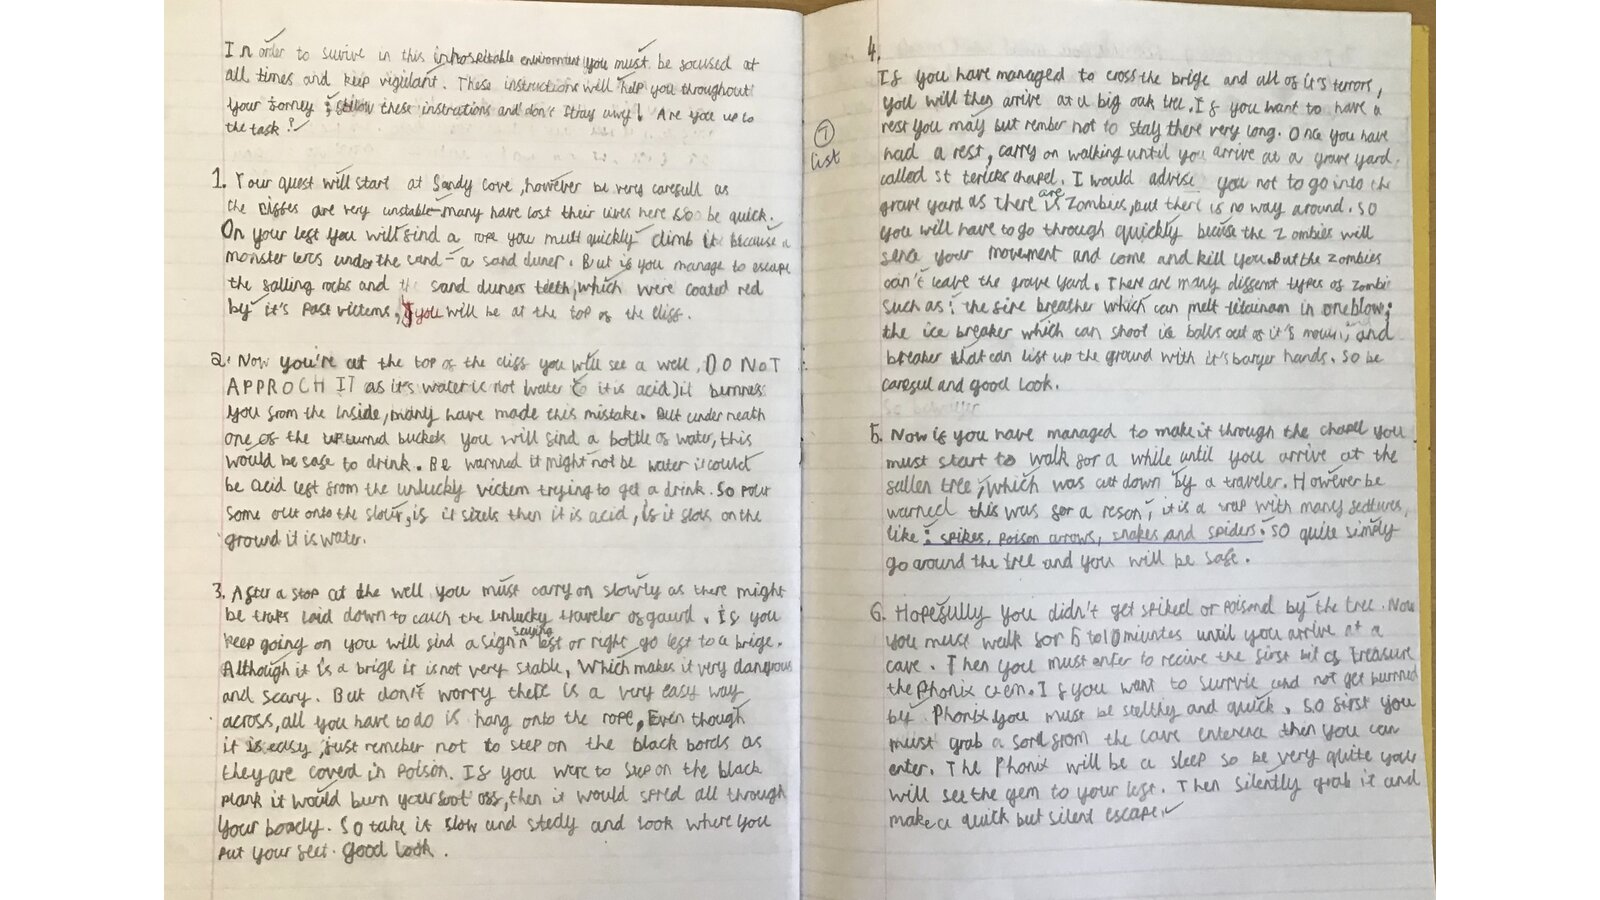 In order to survive in this inhospitable environment you must be focused at
all times and keep vigilant. These instructions will help you throughout
your jorney ; follow these instrations and don't stray away! Are you up to
the task?
1. Your quest will start at Sandy cove, however be very carefull as
the cliffes are very unstable-many have lost their lives here so be quick.
On your left you will find a rope you must quickly climb it because a
monster lercs under the sand - a sand duner. But if you manage to escape
the falling rocks and the sand duners teeth, which were coated red
by it's past victems, you will be at the top of the cliff.
2. Now you're at the top of the cliff you will see a well, DO NOT
APPROCH IT as it's water is not water (it is acid) it burness
you from the inside, many have made this mistake. But under neath
one of the upturned buckets you will find a bottle of water, this
would be safe to drink. Be warned it might not be water it could
be acid left from the unlucky victem trying to get a drink. So pour
some out onto the floor, if it sizels then it is acid, if it flots on the
ground it is water.
3. After a stop at the well you must carry on slowly as there might
be traks laid down to catch the unlucky traveler of gaurd. If you
keep going on you will find a sign saying left or right go left to a brige.
Although it is a brige it is not very stable, Which makes it very dangrous
and scary. But don't worry there is a very easy way
across, all you have to do is hang onto the rope, Even though
it is easy just remeber not to step on the black bords as
they are coverd in poison. If you were to step on the black
plank it would burn your foot off, then it would spred all through
your boady. So take it slow and stedy and look where you
put your feet. good look.
4.
If you have managed to cross the brige and all of it's terrors,
you will then arrive at a big oak tree. If you want to have a
rest you may but rember not to stay there very long. Once you have
had a rest, carry on walking until you arrive at a grave yard.
7
list
called st tericks chapel. I would advise you not to go into the
grave yard as there are is zombies, but there is no way around. So
you will have to go through quickly becuse the zombies will
sence your movement and come and kill you. But the zombies
can't leave the grave yard. There are many diffrent types of zombi
such as: the fire breather which can melt titainam in one blow;
the ice breaker which can shoot ice balls out of it's mouth; and
breaker that can lift up the ground with it's bare hands. So be
careful and good look.
5. Now if you have managed to make it through the chapel you
must start to walk for a while until you arrive at the
fallen tree, which was cut down by a traveler. However be
warned this was for a reson; it is a trap with many fettures,
like: spikes, poison arrows, snakes and spiders. So quite simply
go around the tree and you will be safe.
6. Hopefully you didn't get spiked or poisond by the tree. Now
you must walk for 5 to 10 miuntes until you arrive at a
cave. Then you must enter to recive the first bit of treasure
the Phonix Gem. If you want to survie and not get burrned
by Phonix you must be stelthey and quick. So first you
must grab a sord from the cave enterence then you can
enter. The Phonix will be a sleep so be very quite you
will see the gem to your left. Then silently grab it and
make a quick but silent escape.